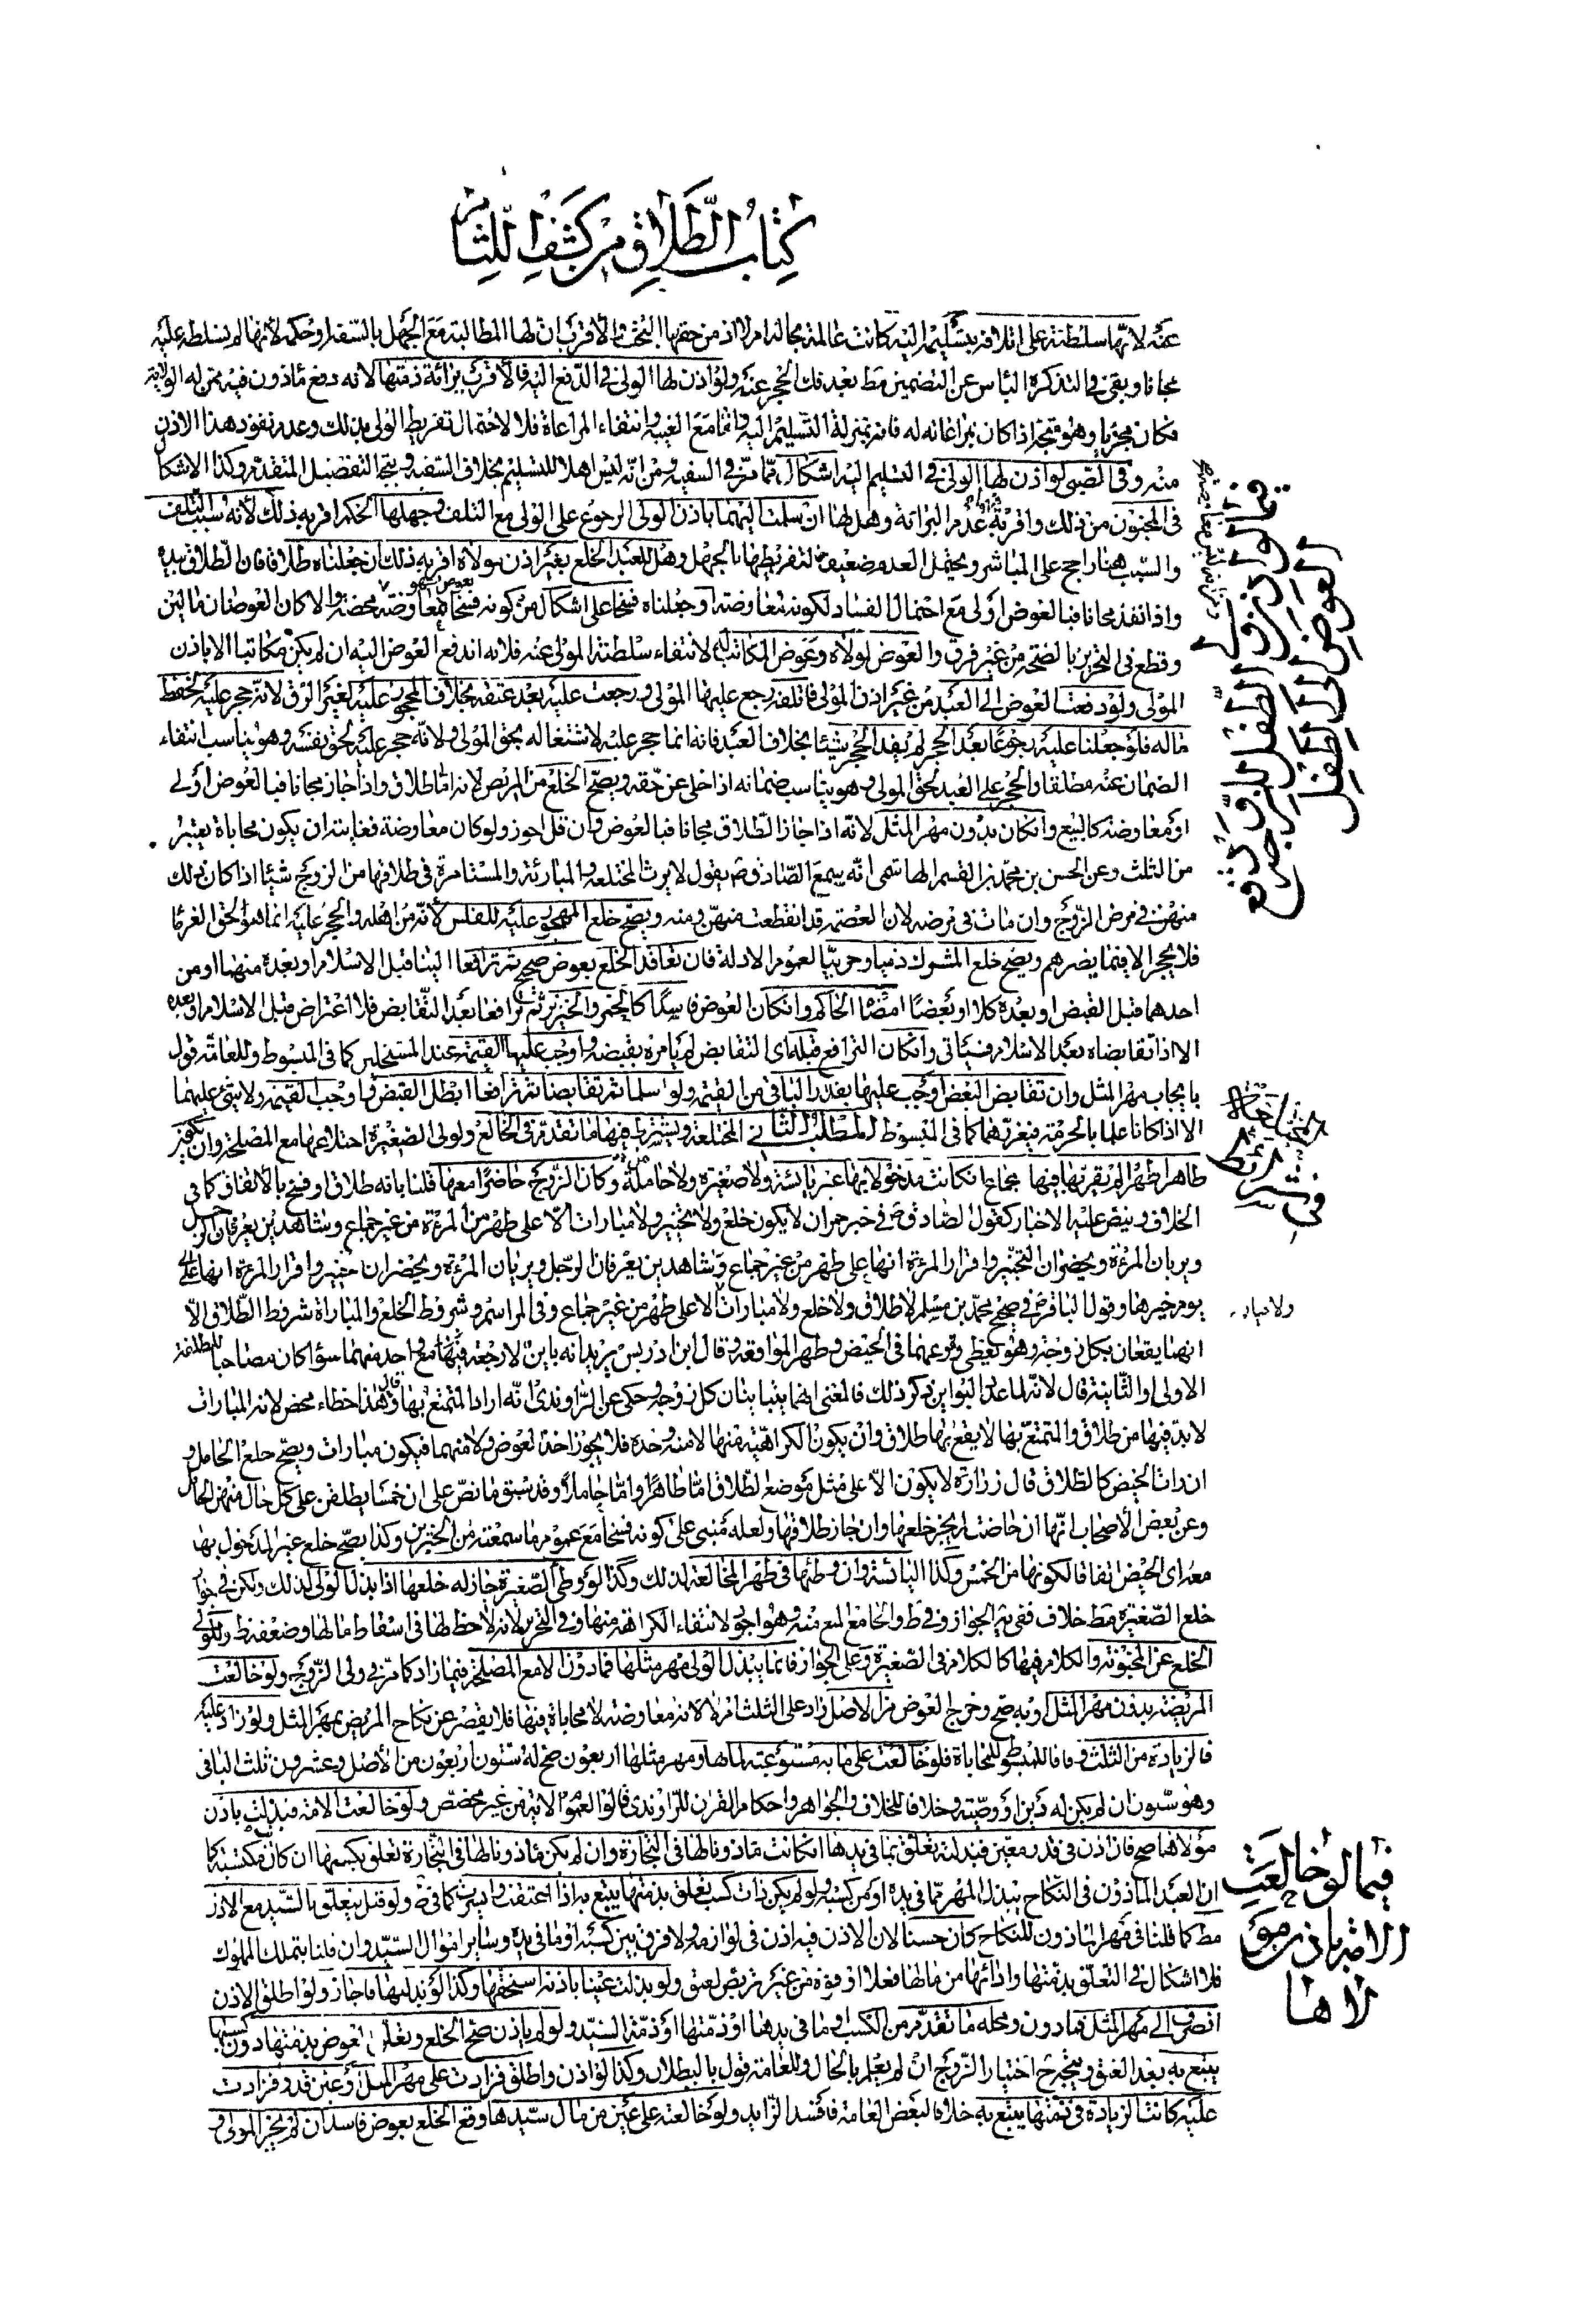 كتاب الطلاق من كشف اللثام
عنه لانها سلطته على اتلافه بتسليمه اليه كانت عالمة بحاله ام لا اذ من حقها البحث والاقرب ان لها المطالبة مع الجهل بالسفه او حكمه لانها لم تسلطه عليه
مجانا وبقى في التذكرة الباس عن التضمين مط بعد فك الحجر عنه ولو اذن لها الولي في الدفع اليه فالاقرب برائة ذمتها لانه دفع ماذون فيه ممن له الولاية
فكان مجزيا وهو متجه اذا كان بمراعاته له فانه بمنزلة التسليم اليه واما مع الغيبة وانتفاء المراعاة فلا لاحتمال تفريط الولي بذلك وعدم نفوذ هذا الاذن
منه وفي الصبي لو اذن لها الولي في التسليم اليه اشكال مما مر في السفيه ومن انه ليس اهلا للتسليم بخلاف السفيه ويتجه التفضيل المتقدم وكذا الاشكال
في المجنون من ذلك واقربه عدم البرائة وهل لها ان سلمت اليهما باذن الولي الرجوع على الولي مع التلف وجهلها الحكم اقربه ذلك لانه سبب التلف
والسبب هنا راجح على المباشر ويحتمل العدم ضعيفا لتفريطها بالجهل وهل للعبد الخلع بغير اذن مولاه اقربه ذلك ان جعلناه طلاقا فان الطلاق بيده
واذا نفذ مجانا فبالعوض اولى مع احتمال الفساد لكونه معاوضة او جعلناه فسخا على اشكال من كونه فسخا بعوض فهو معاوضة محضة والا كان العوضان مالين
وقطع في التحرير بالصحة من غير فرق والعوض لمولاه وعوض المكاتب له لانتفاء سلطنة المولى عنه فلا اندفع العوض اليه ان لم يكن مكاتبا الا باذن
المولى ولو دفعت العوض الى العبد من غير اذن المولى فاتلفه رجع عليها المولى ورجعت عليه بعد عتقه بخلاف المحجور عليه لغير الرق لانه حجر عليه لحفظ
ماله فلو جعلنا عليه رجوعا بعد الحجر لم يفد الحجر شيئا بخلاف العبد فانه انما حجر عليه لاشتغاله بحق المولى ولانه حجر عليه لحق نفسه وهو يناسب انتفاء
الضمان عنه مطلقا والحجر على العبد لحق المولى وهو يناسب ضمانه اذا خلى عن حقه ويصح الخلع من المريض لانه اما طلاق واذا جاز مجانا فبالعوض اولى
او معاوضة كالبيع وان كان بدون مهر المثل لانه اذا جاز الطلاق مجانا فبالعوض وان قل اجوز ولو كان معاوضة فغايته ان يكون محاباة يعتبر
من الثلث وعن الحسن بن محمد بن القسم الهاشمي انه سمع الصادق ع يقول لا يرث المختلعة والمبارئة والمستامرة في طلاقها من الزوج شيئا اذا كان ذلك
منهن في مرض الزوج وان مات في مرضه لان العصمة قد انقطعت منهن ومنه ويصح خلع المحجور عليه للفلس لانه من اهله والحجر عليه انما هو لحق الغرما
فلا يحجر الا فيما يضر هم ويصح خلع المشرك ذميا وحربيا لعموم الادلة فان تعاقدا الخلع بعوض صحيح ثم ترافعا الينا قبل الاسلام او بعده منهما او من
احدهما قبل القبض او بعده كلا او بعضا امضاه الحاكم وان كان العوض فاسدا كالخمر والخنزير ثم ترافعا بعد التقابض فلا اعتراض قبل الاسلام او بعده
الا اذا تقابضاه بعد الاسلام فسياتي وان كان الترافع قبله اى التقابض لم يامره بقبضه واوجب عليها القيمة عند المستحلين كما في المبسوط وللعامة قول
بايجاب مهر المثل وان تقابض البعض وجب عليها بقدر الباقي من القيمة ولو اسلما ثم تقابضا ثم ترافعا ابطل القبض واوجب القيمة ولا شئ عليهما
الا اذا كانا علما بالحرمة فيعزرهما كما في المبسوط المطلب الثاني المختلعة ويشترط فيها ما تقدم في الخالع ولولي الصغيرة اختلاعها مع المصلحة وان تكون
طاهرا طهرا لم يقربها فيها بجماع ان كانت مدخولا بها غير يائسة ولا صغيرة ولا حاملة وكان الزوج حاضرا معها قلنا بانه طلاق او فسخ بالاتفاق كما في
الخلاف وينص عليه الاخبار كقول الصادق ع في خبر حمران لا يكون خلع ولا تخيير ولا مبارات الا على طهر من المرئة من غير جماع وشاهدين يعرفان الرجل
ويريان المرئة ويحضران التخيير واقرار المرئة انها على طهر من غير جماع وشاهدين يعرفان الرجل ويريان المرئة ويحضران التخيير واقرار المرئة انها على
يوم خيرها وقول الباقر ع في صحيح محمد بن مسلم لا طلاق ولا خلع ولا مبارات الا على طهر من غير جماع وفي المراسم وشروط الخلع والمباراة شروط الطلاق الا
انهما يقعان بكل زوجة وهو يعطي وقوعهما في الحيض وطهر المواقعة وقال ابن ادريس يريد انه باين لا رجعة فيها مع واحد منهما سواء كان مصاحبا للطلقة
الاولى او الثانية قال لانه لما عد البواين ذكر ذلك فالمعنى انهما يتباينان كل زوجة وحكى عن الراوندي انه اراد المتمتع بها قال وهذا خطاء محض لانه المبارات
لا بد فيها من طلاق والمتمتع بها لا يقع بها طلاق وان يكون الكراهية منها لا منه وحده فلا يجوز اخذ العوض ولا منهما فيكون مبارات ويصح خلع الحامل و
ان رات الحيض كالطلاق قال زرارة لا يكون الا على مثل موضع الطلاق اما طاهرا واما حاملا وقد سبق ما نص على ان خمسا يطلقن على كل حال منهن الحامل
وعن بعض الاصحاب انها ان حاضت لم يجز خلعها وان جاز طلاقها ولعله مبني على كونه فسخا مع عموم ما سمعته من الخبرين وكذا يصح خلع غير المدخول بها
معه اى الحيض اتفاقا لكونها من الخمس وكذا اليائسة وان وطئها في طهر المخالعة لذلك وكذا لو وطئ الصغيرة جاز له خلعها اذا بذل الولى لذلك ولكن في جواز
خلع الصغيرة مط خلاف ففي ير الجواز وفي ط والجامع المنع منه وهو اجود لانتفاء الكراهة منها وفي التحرير لانه لا حظ لها في اسقاط مالها وضعفه ظ وللولى
الخلع عن المجنونة والكلام فيها كالكلام في الصغيرة وعلى الجواز فانما يبذل الولي مهر مثلها فما دون الا مع المصلحة فيما زاد كما مر في ولى الزوج ولو خالعت
المريضة بدون مهر المثل او به صح وخرج العوض من الاصل زاد على الثلث ام لا لانه معاوضة لا محاباة فيها فلا يقصر عن نكاح المريض بمهر المثل ولو زاد عليه
فالزيادة من الثلث وفاقا للمبسوط للمحاباة فلو خالعت على مائة مستوعبة لمالها ومهر مثلها اربعون صح له ستون اربعون من الاصل وعشرون ثلث الباقي
وهو ستون ان لم يكن له دين او وصية وخلافا للخلاف والجواهر واحكام القران للراوندي قالوا لعموم الاية من غير مخصص ولو خالعت الامة فبذلت باذن
مولاها صح فان اذن في قدر معين فبذلته تعلق بما في يدها ان كانت ماذونا لها في التجارة وان لم يكن ماذونا لها في التجارة تعلق بكسبها ان كان مكتسبة كما
ان العبد الماذون في النكاح يبذل المهر مما في يده او من كسبه ولو لم يكن ذات كسب تعلق بذمتها يتبع به اذا اعتقت وايسرت كما في ط ولو قيل يتعلق بالسيد مع الاذن
مط كما قلنا في مهر الماذون للنكاح كان حسنا لان الاذن فيه اذن في لوازمه ولا فرق بين كسبه او ما في يده وساير اموال السيد وان قلنا بتملك المملوك
فلا اشكال في التعلق بذمتها وادائها من مالها فعلا او قوة من غير تربص لعتق ولو بذلت عينا باذنه استحقها وكذا لو بذلتها فاجاز ولو اطلق الاذن
انصرف الى مهر المثل فما دون ومحله ما تقدم من الكسب وما في يدها او ذمتها او ذمة السيد ولو لم ياذن صح الخلع وتعلق العوض بذمتها دون كسبها
يتبع به بعد العتق ويتجه ح اختيار الزوج ان لم يعلم بالحال وللعامة قول بالبطلان وكذا لو اذن واطلق فزادت على مهر المثل او عين قدرا فزادت
عليه كانت الزيادة في ذمتها يتبع به خلافا لبعض العامة فافسد الزايد ولو خالعته على عين من مال سيدها وقع الخلع بعوض فاسد ان لم يجز المولى و
ولا مبار
فيما لو خالعت
الامة باذن مو
لاها